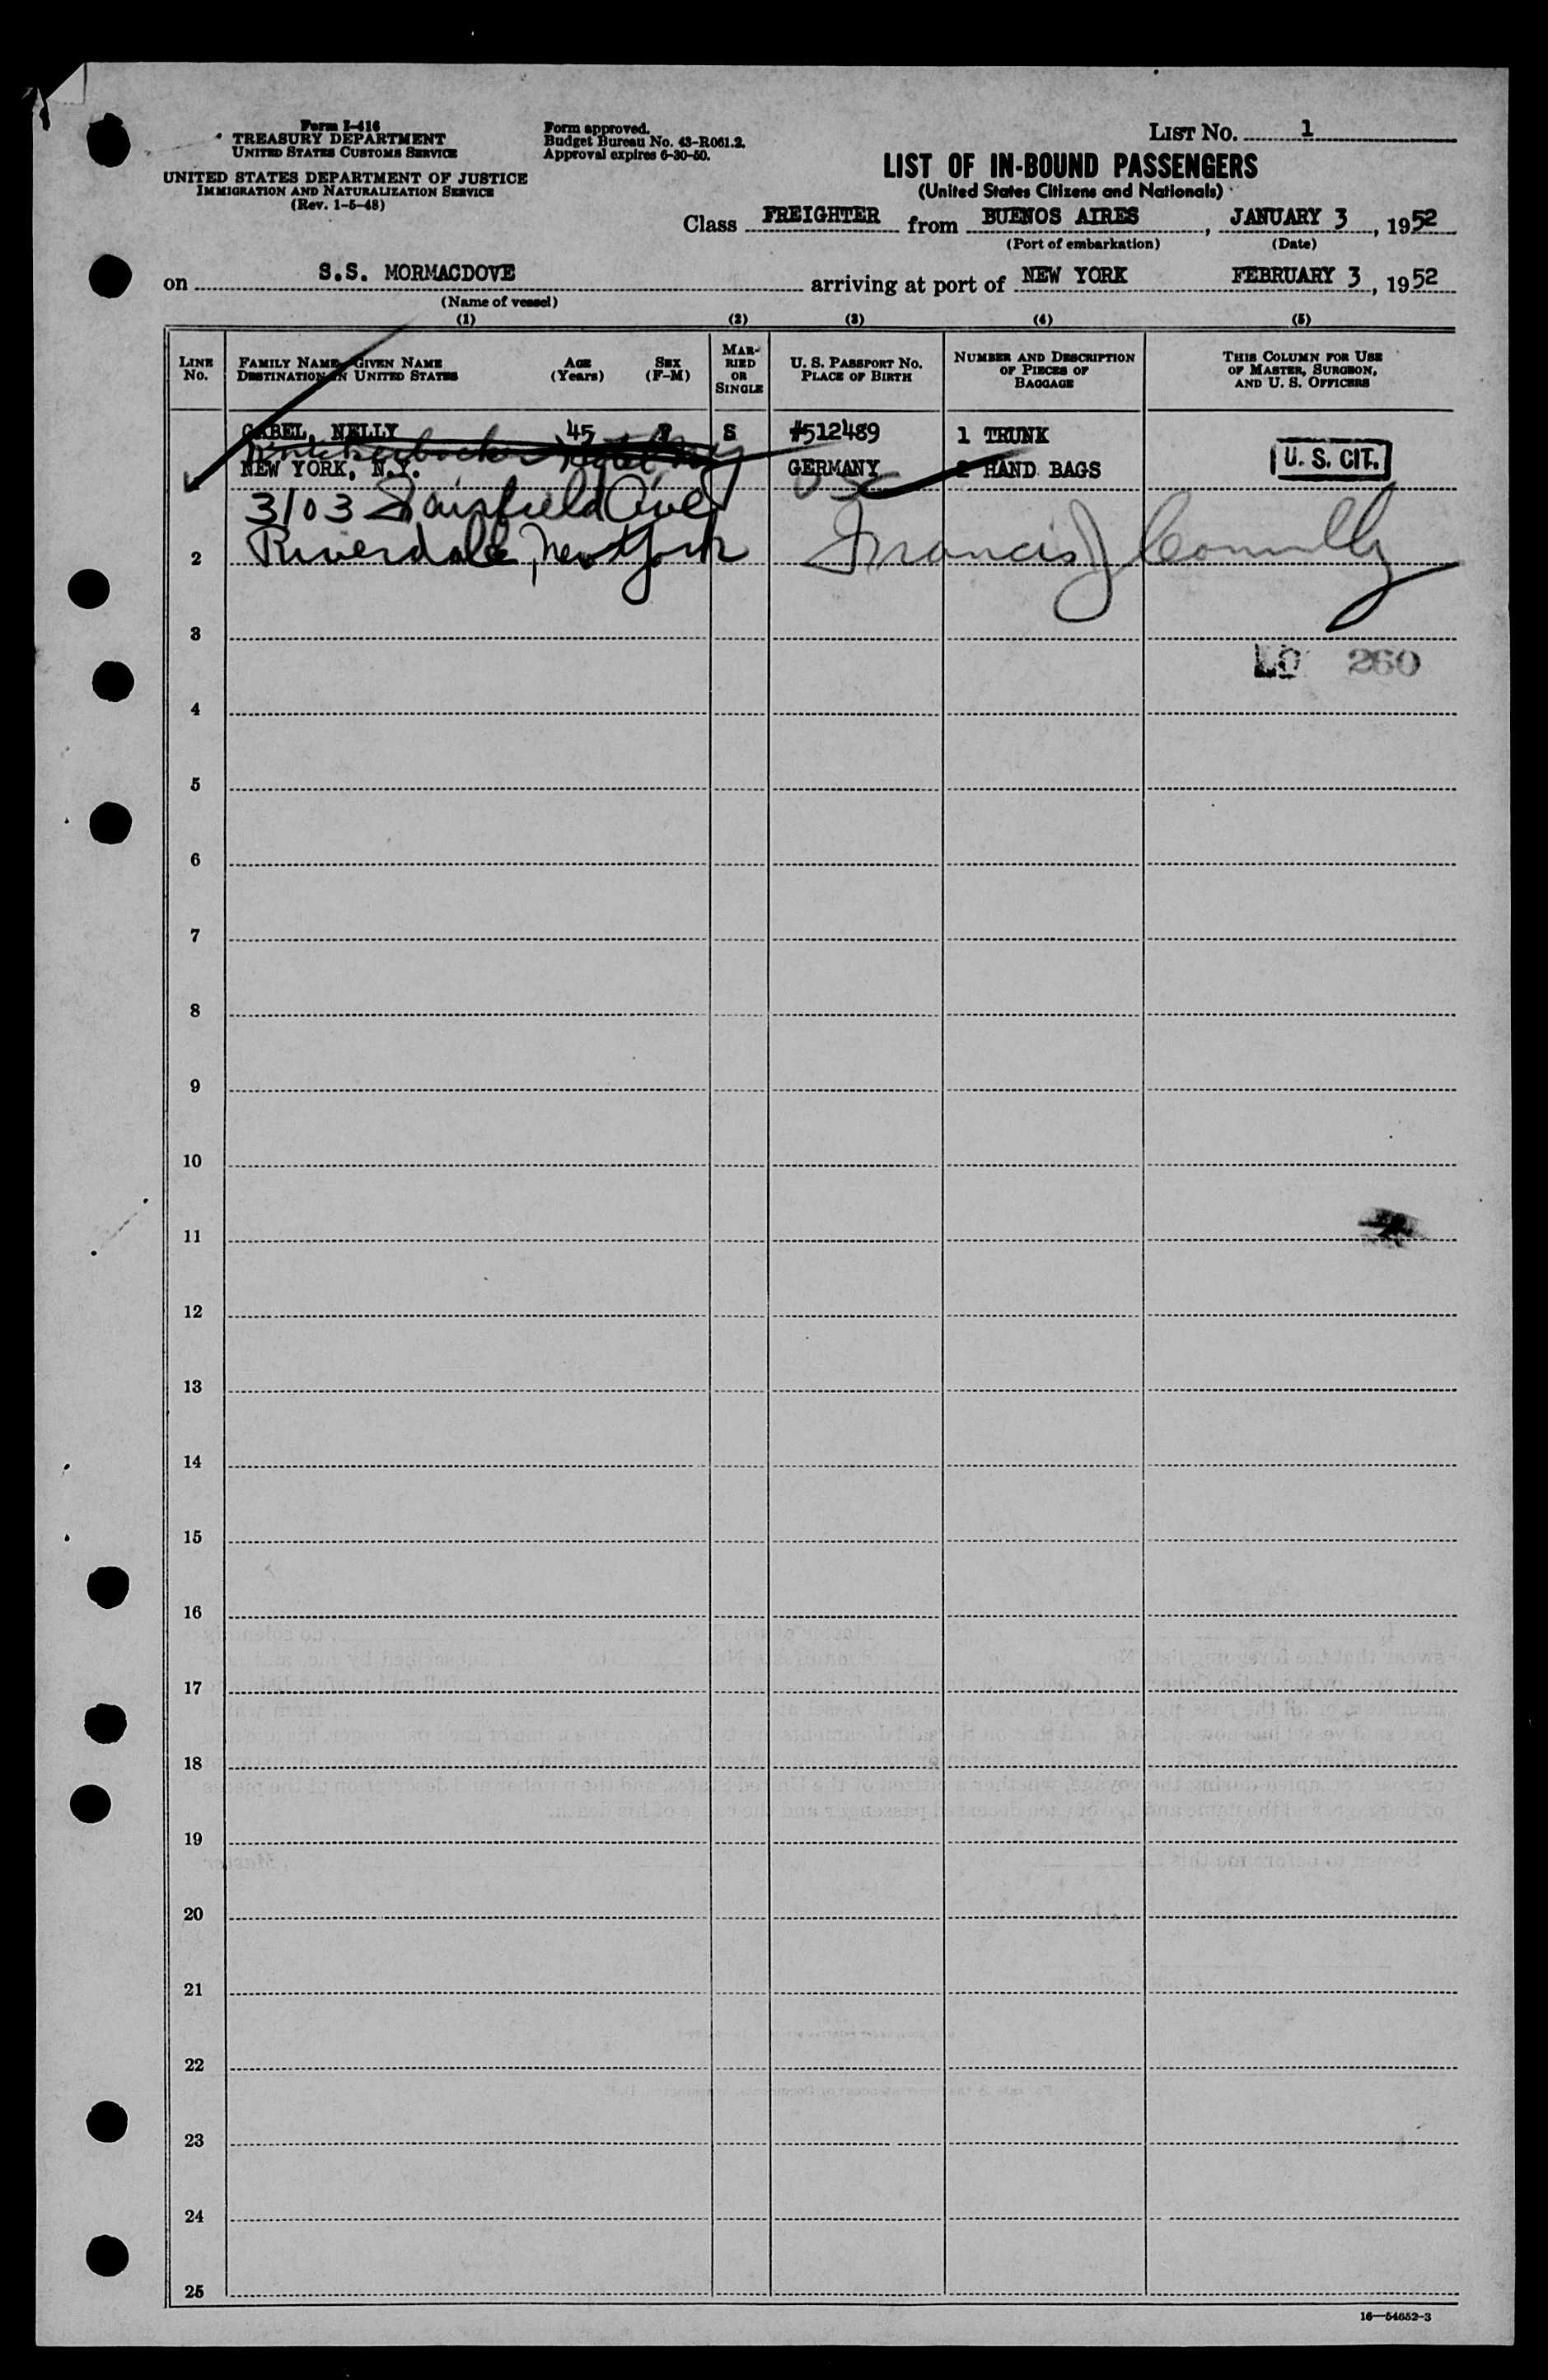 Form I-416
TREASURY DEPARTMENT
UNITED STATES CUSTOMS SERVICE
UNITED STATES DEPARTMENT OF JUSTICE
IMMIGRATION AND NATURALIZATION SERVICE
(Rev. 1-5-48)
Form approved.
Budget Bureau No. 43-R061.2.
Approval expires 6-30-50.
LIST No. 1
LIST OF IN-BOUND PASSENGERS
(United States Citizens and Nationals)
Class FREIGHTER from BUENOS AIRES, JANUARY 3, 1952
(Port of embarkation) (Date)
on S.S. MORMACDOVE arriving at port of NEW YORK FEBRUARY 3, 1952
(Name of vessel)
(1) (2) (3) (4) (5)
LINE No.
FAMILY NAME—GIVEN NAME
DESTINATION IN UNITED STATES
AGE (Years)
SEX (F-M)
MARRIED OR SINGLE
U. S. PASSPORT No.
PLACE OF BIRTH
NUMBER AND DESCRIPTION OF PIECES OF BAGGAGE
THIS COLUMN FOR USE OF MASTER, SURGEON, AND U. S. OFFICERS
GABEL, NELLY 45 F S #512489 1 TRUNK
Knickerbocker Hotel NY
NEW YORK, N.Y. GERMANY 2 HAND BAGS U. S. CIT.
USC
3103 Fairfield Ave
2 Riverdale, New York Francis J Connolly
3
260
4
5
6
7
8
9
10
11
12
13
14
15
16
17
18
19
20
21
22
23
24
25
16—54652-3